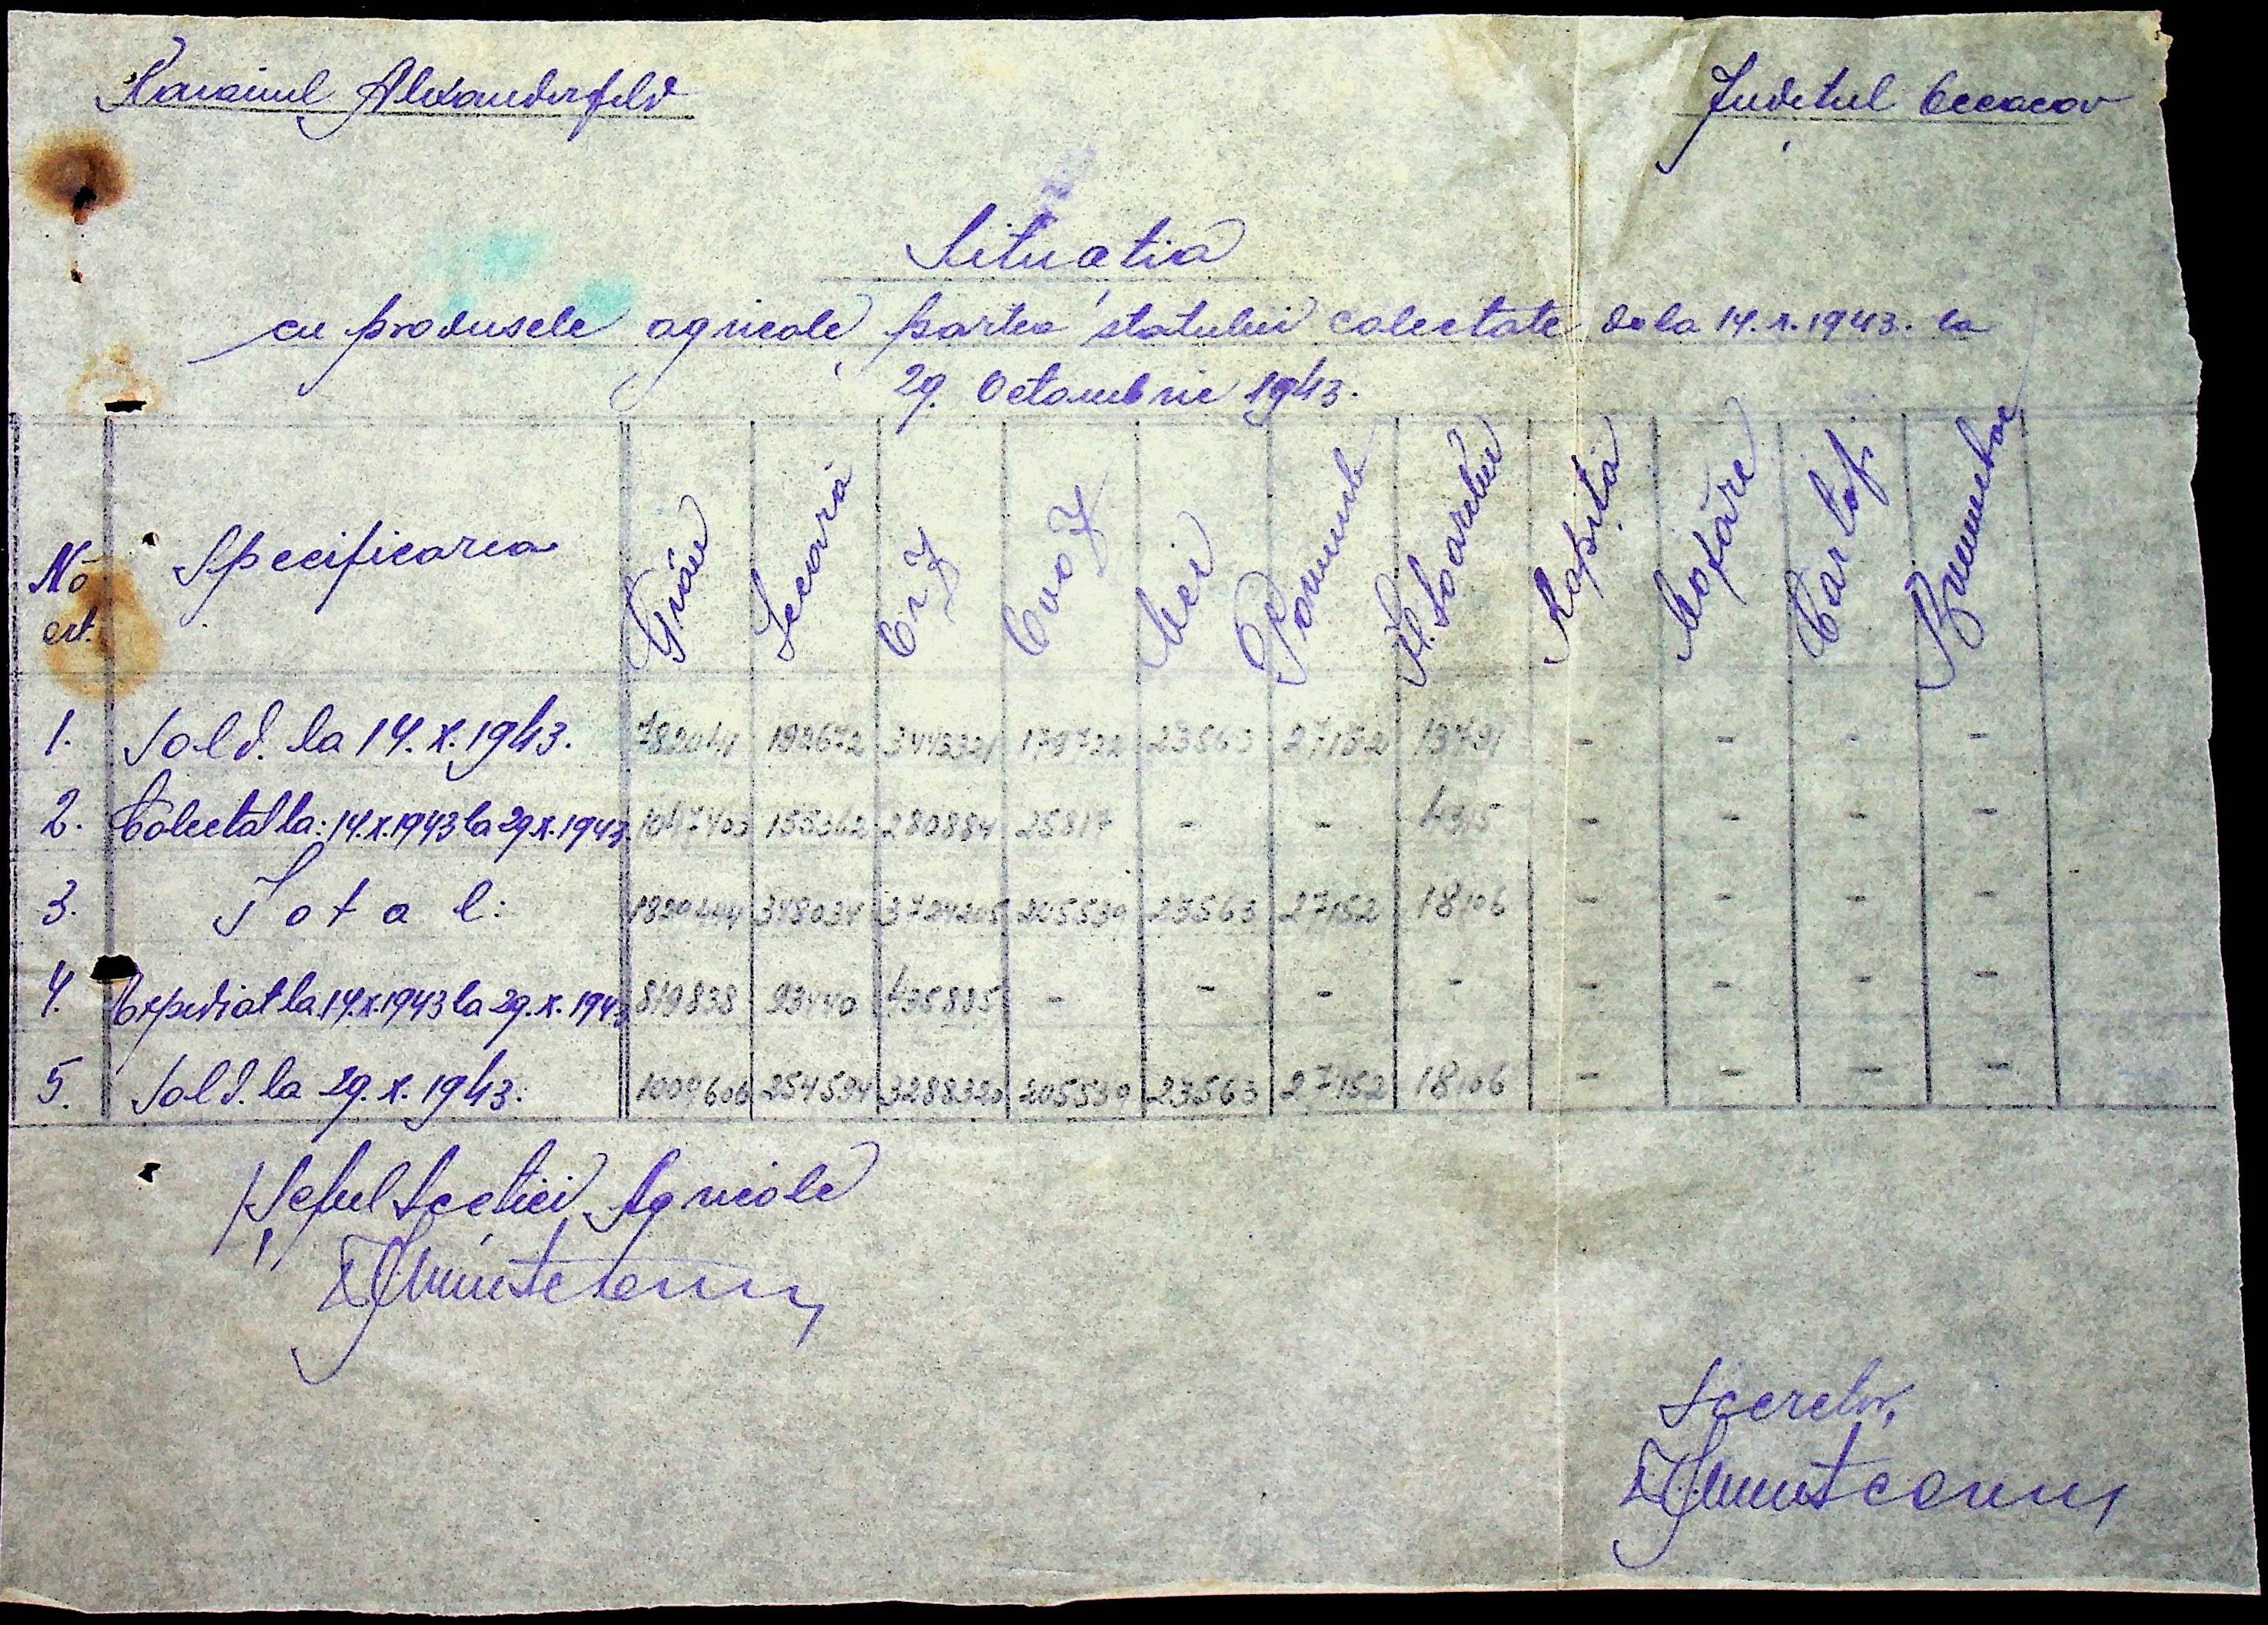 Raionul Alexanderfeld Județul Oceacov
Situația
cu produsele agricole, partea statului colectate dela 14.X.1943. la
29. Octombrie 1943.
No crt. Specificarea Grâu Secară Orz Ovoz Mei Porumb Fl. Soarelui Rapiță Cartofi Bumbac
1. Sold. la 14.X.1943. 782041 192672 3443321 179722 23563 27152 13791 - - - -
2. Colectat la: 14.X.1943 la 29.X.1943. 1047403 155362 280884 25817 - - 4315 - - - -
3. Total: 1829444 348034 3724205 205539 23563 27152 18106 - - - -
4. Expediat la. 14.X.1943 la 29.X.1943 819838 93440 435885 - - - - - - - -
5. Sold. la 29.X.1943: 1009606 254594 3288320 205539 23563 27152 18106 - - - -
Șeful Secției Agricole
Secretar,